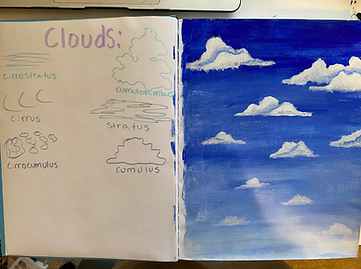 Clouds:
Cirrostratus
cumulonimbus
Cirrus
Stratus
Cirrocumulus
Cumulus